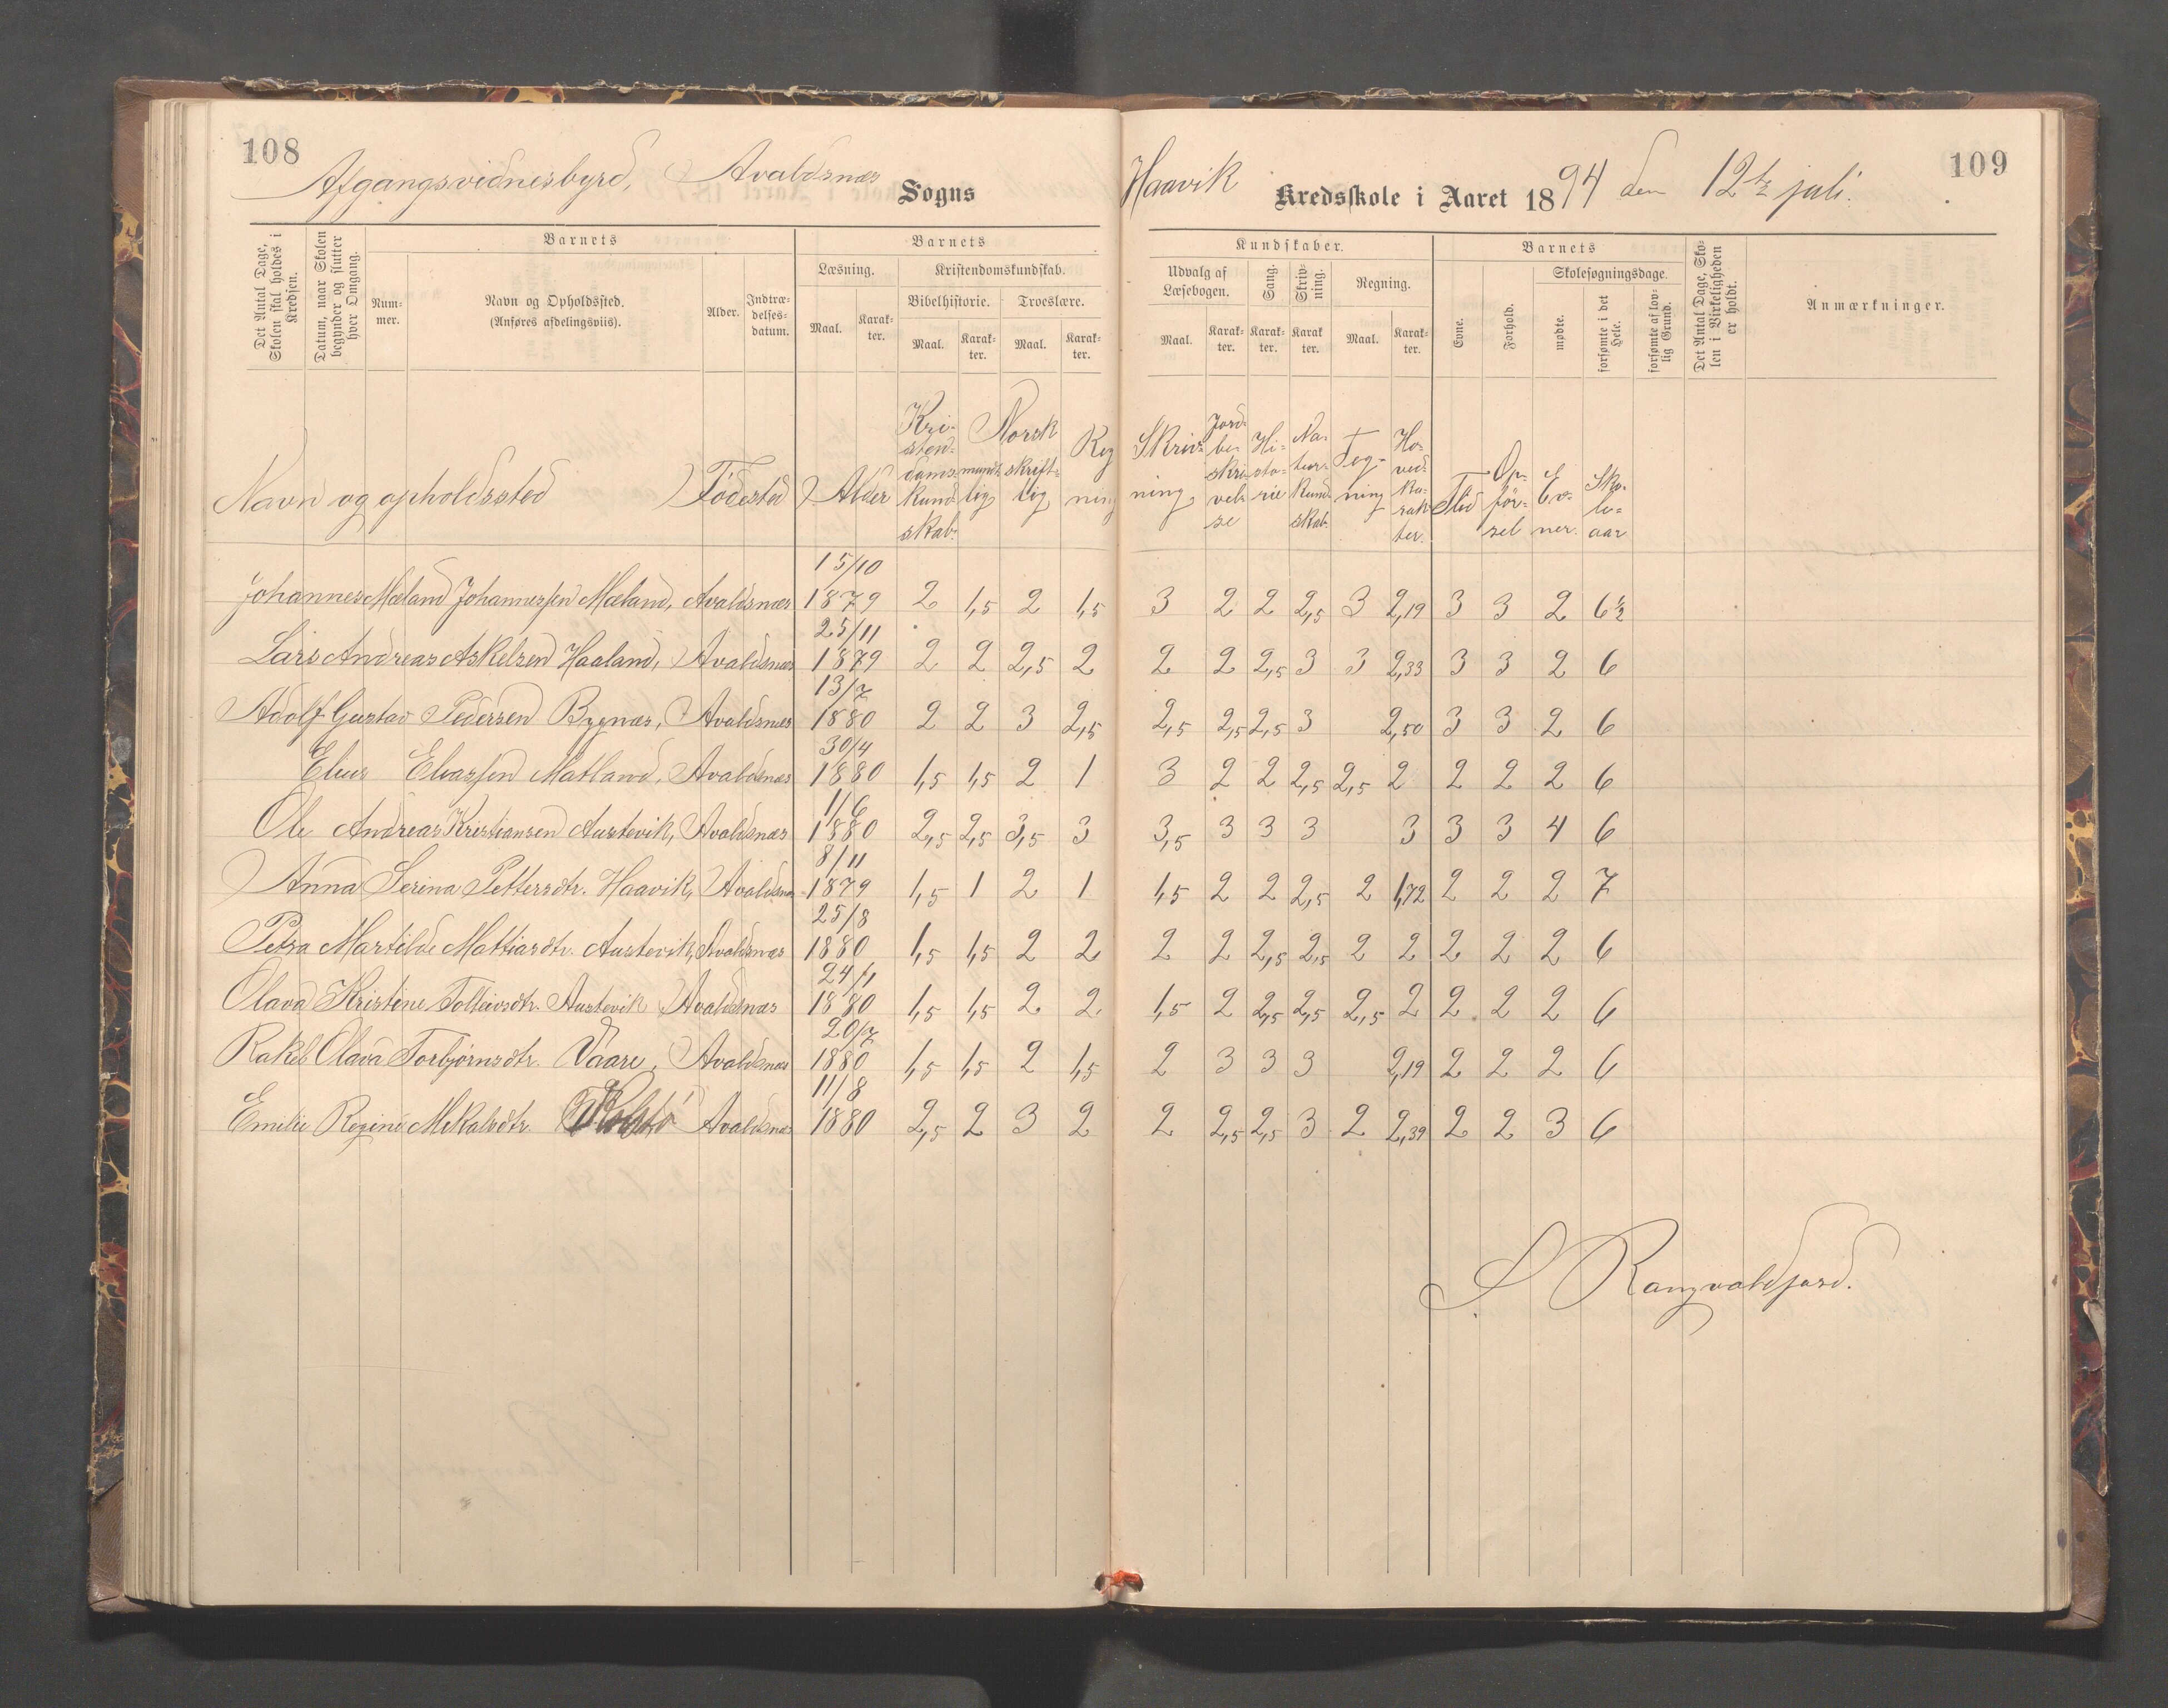 108
109
Afgangsvidnesbyrd, Avaldsnæs Sogns Haavik Kredsskole i Aaret 1894 den 12te juli.
Det Antal Dage, Skolen skal holdes i Kredsen.
Datum, naar Skolen begynder og slutter hver Omgang.
Barnets
Num-
mer.
Navn og Opholdssted.
(Anføres afdelingsviis).
Alder.
Indtræ-
delses-
datum.
Barnets
Læsning.
Maal.
Karak-
ter.
Kristendomskundskab.
Bibelhistorie.
Troeslære.
Maal.
Karak-
ter.
Maal.
Karak-
ter.
Kundskaber.
Udvalg af
Læsebogen.
Sang.
Skriv-
ning.
Regning.
Maal.
Karak-
ter.
Karak-
ter.
Karak
ter.
Maal.
Karak-
ter.
Barnets
Evne.
Forhold.
Skolesøgningsdage.
mødte.
forsømte i det Hele.
forsømte af lov-
lig Grund.
Det Antal Dage, Sko-
len i Virkeligheden
er holdt.
Anmærkninger.
Navn og opholdssted Födested Alder Kri-
sten-
doms-
kund-
skab. Norsk
mundt-
lig skrift-
lig Reg
ning Skriv-
ning, Jord-
be-
skri-
vel-
se Hi-
sto-
rie Na-
tur-
kund-
skab. Teg-
ning Ho-
ved-
ka-
rak-
ter. Flid Op-
för-
sel Ev-
ner. Sko-
le-
aar
15/10
Johannes Mæland Johannessen Mæland, Avaldsnæs 1879 2 1,5 2 1,5 3 2 2 2,5 3 2,19 3 3 2 6½
25/11
Lars Andreas Askelsen Haaland, Avaldsnæs 1879 2 2 2,5 2 2 2 2,5 3 3 2,33 3 3 2 6
13/7
Adolf Gustav Pedersen Bygnæs, Avaldsnæs 1880 2 2 3 2,5 2,5 2,5 2,5 3 2,50 3 3 2 6
30/4
Elias Eliassen Matland, Avaldsnæs 1880 1,5 1,5 2 1 3 2 2 2,5 2,5 2 2 2 2 6
1/6
Ole Andreas Kristiansen Austevik, Avaldsnæs 1880 2,5 2,5 3,5 3 3,5 3 3 3 3 3 3 4 6
8/11
Anna Serina Pettersdtr. Haavik, Avaldsnæs 1879 1,5 1 2 1 1,5 2 2 2,5 2 1,72 2 2 2 7
25/8
Petra Martilde Mattiasdtr. Austevik, Avaldsnæs 1880 1,5 1,5 2 2 2 2 2,5 2,5 2 2 2 2 2 6
24/1
Olava Kristine Tolleivsdtr. Austevik Avaldsnæs 1880 1,5 1,5 2 2 1,5 2 2,5 2,5 2,5 2 2 2 2 6
20/7
Rakel Olava Torbjörnsdtr. Vaare, Avaldsnæs 1880 1,5 1,5 2 1,5 2 3 3 3 2,19 2 2 2 6
11/8
Emilie Regine Mikalsdtr. Kolstö Avaldsnæs 1880 2,5 2 3 2 2 2,5 2,5 3 2 2,39 2 2 3 6
S Rangvaldsjord.